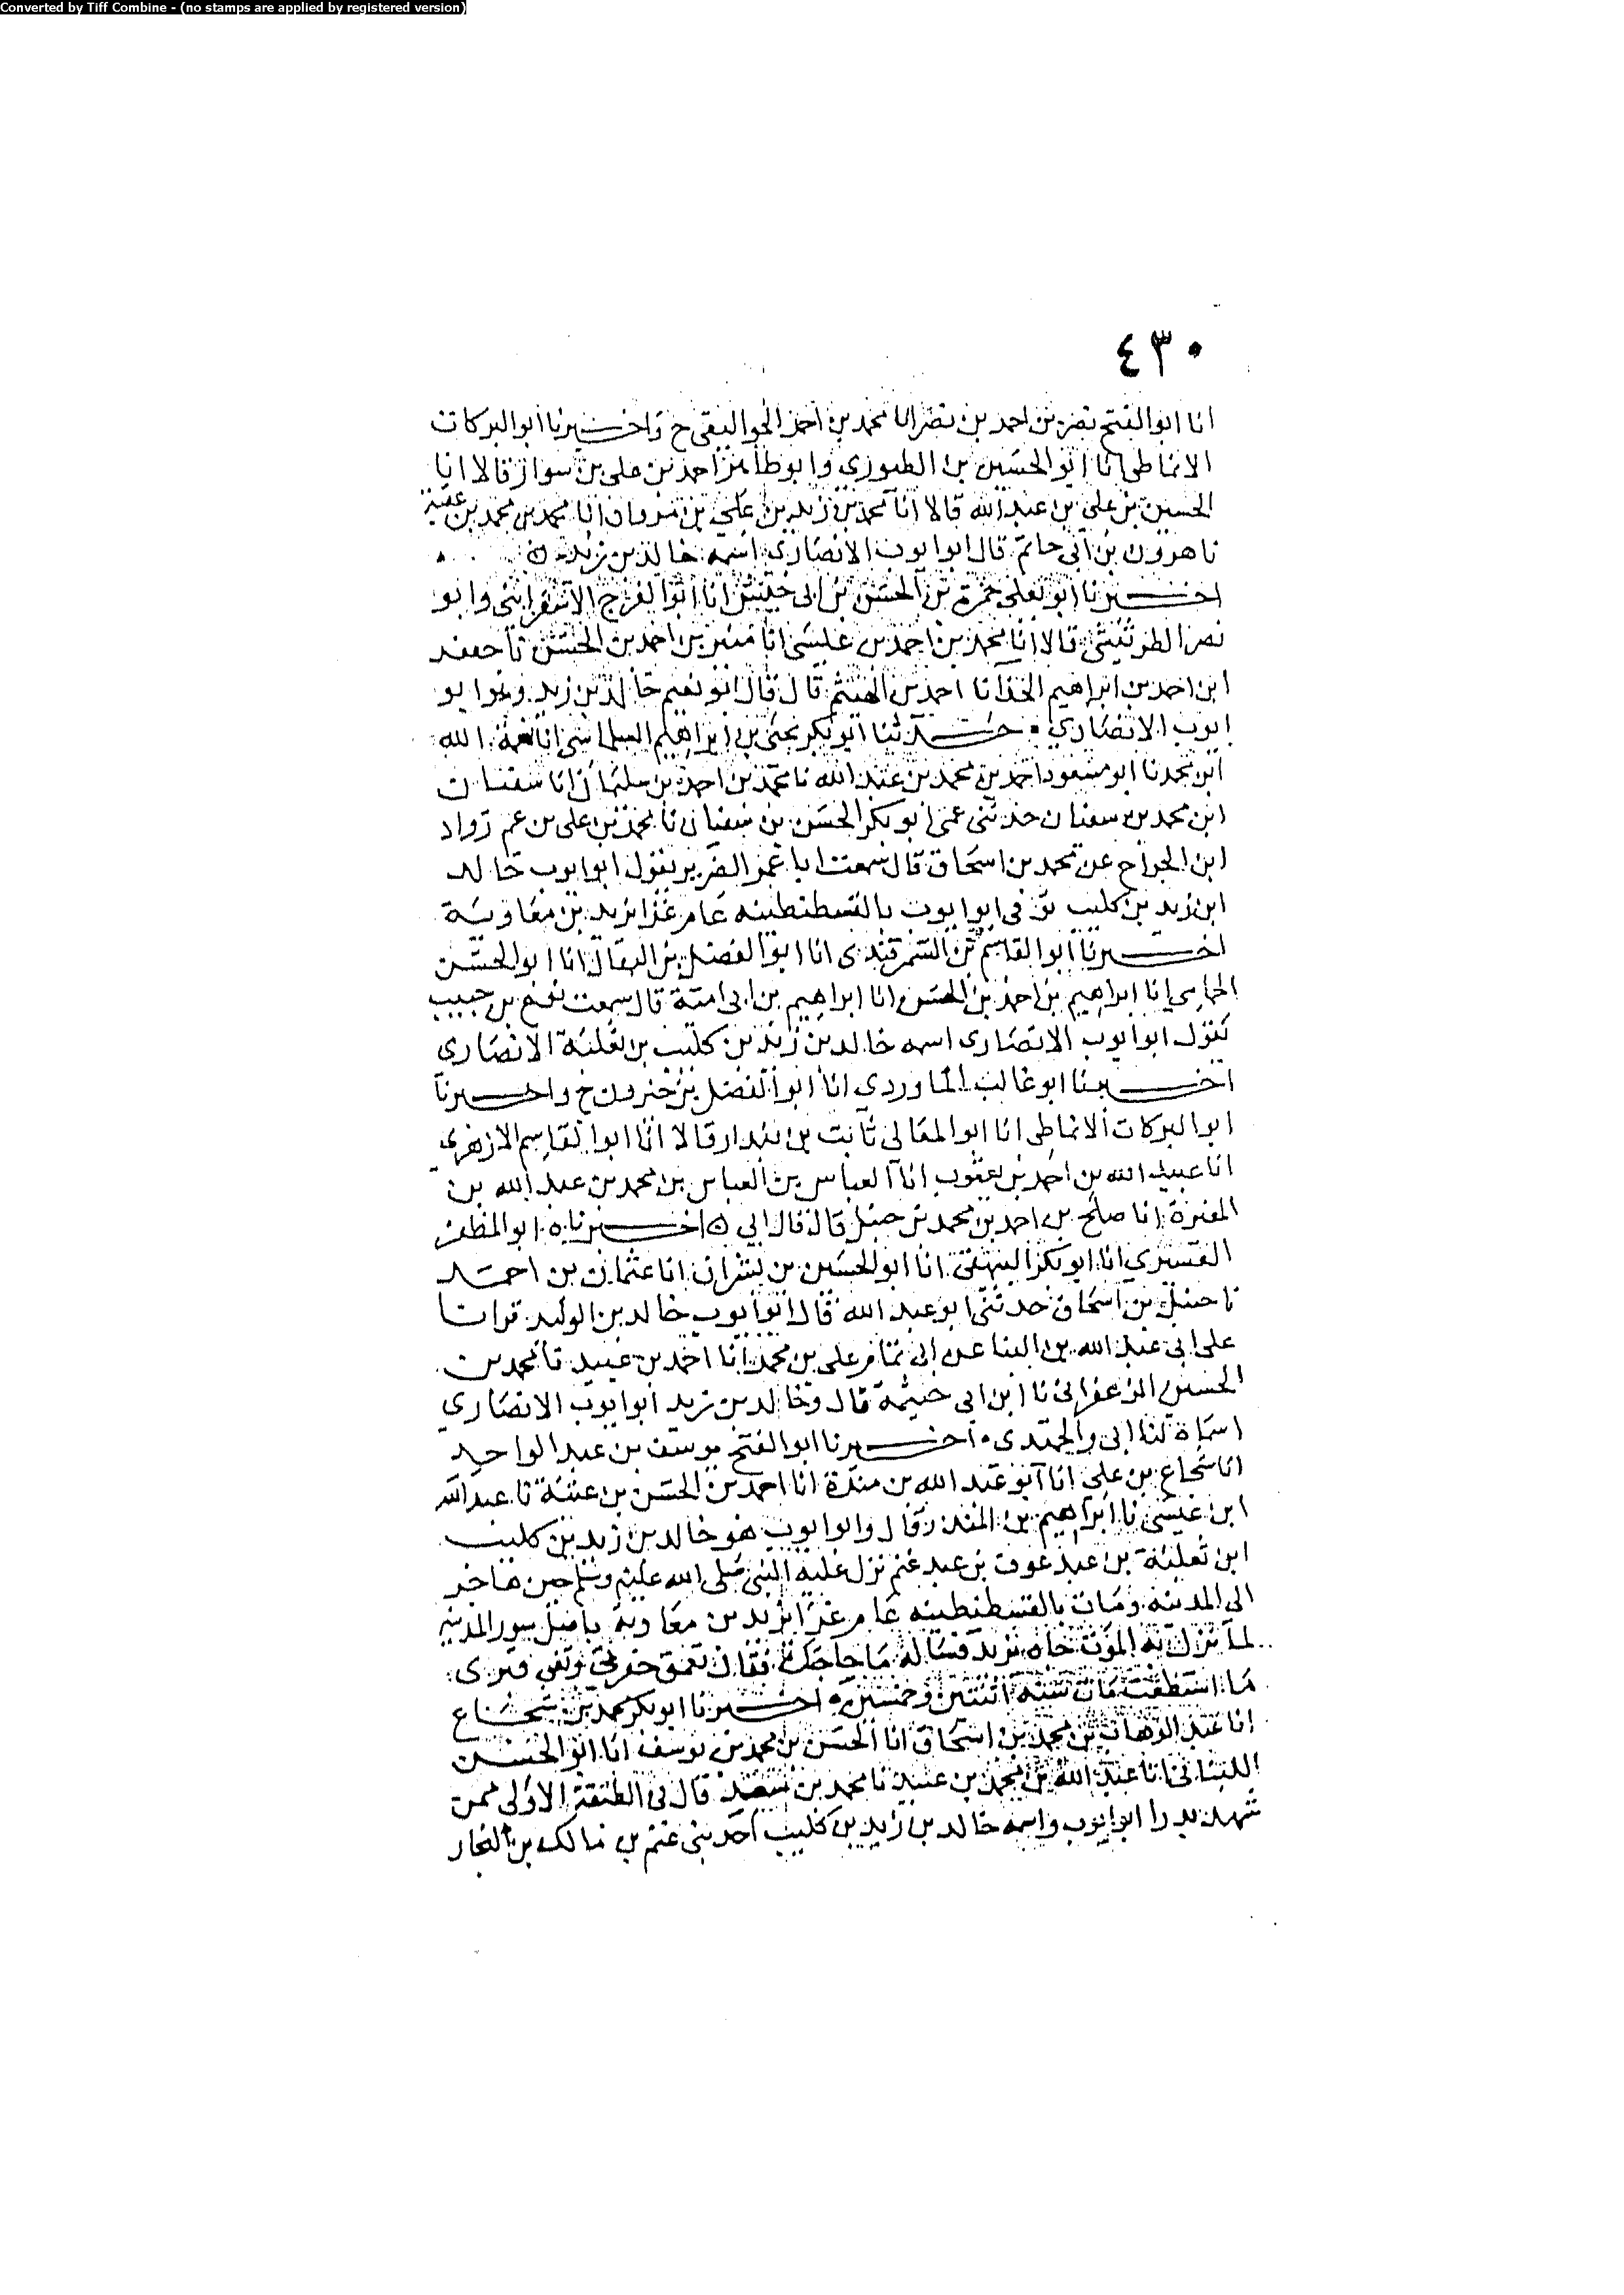 Converted by Tiff Combine - (no stamps are applied by registered version)
٤٣٠
انا ابو الفتح نصر بن احمد بن نصر انا محمد بن احمد الجواليقي ح واخبرنا ابو البركات
الانماطي انا ابو الحسين بن الطيوري وابو طاهر احمد بن علي بن سوار قالا انا
الحسين بن علي بن عبد الله قالا انا محمد بن زيد بن علي بن مروان انا محمد بن محمد بن عقبة
نا هرون بن ابي حاتم قال ابو ايوب الانصاري اسمه خالد بن زيد
اخبرنا ابو يعلى حمزة بن الحسن بن ابي خيش انا ابو الفرج الاسفرايني وابو
نصر الطريثيثي قالا انا محمد بن احمد بن عيسى انا منير بن احمد بن الحسن نا جعفر
ابن احمد بن ابراهيم الحذا نا احمد بن الهيثم قال قال ابو نعيم خالد بن زيد وهو ابو
ايوب الانصاري حدثنا ابو بكر يحيى بن ابراهيم السلماسي انا نعمة الله
ابن محمد نا ابو مسعود احمد بن محمد بن عبد الله نا محمد بن احمد بن سليمان انا سفيان
ابن محمد بن سفيان حدثني عمي ابو بكر الحسن بن سفيان نا محمد بن علي بن عم رواد
ابن الجراح عن محمد بن اسحاق قال سمعت ابا عمر الضرير يقول ابو ايوب خالد
ابن زيد بن كليب توفي ابو ايوب بالقسطنطينه عام غزا يزيد بن معاوية
اخبرنا ابو القاسم بن السمرقندي انا ابو الفضل بن البقال انا ابو الحسن
الحمامي انا ابراهيم بن احمد بن الحسن انا ابراهيم بن ابي امية قال سمعت نوح بن حبيب
يقول ابو ايوب الانصاري اسمه خالد بن زيد بن كليب بن ثعلبة الانصاري
اخبرنا ابو غالب الماوردي انا ابو الفضل بن خيرون ح واخبرنا
ابو البركات الانماطي انا ابو المعالي ثابت بن بندار قالا انا ابو القاسم الازهري
انا عبيد الله بن احمد بن يعقوب انا العباس بن العباس بن محمد بن عبد الله بن
المغيرة انا صالح بن احمد بن محمد بن حنبل قال قال ابي اخبرناه ابو المظفر
القشيري انا ابو بكر البيهقي انا ابو الحسين بن بشران انا عثمان بن احمد
نا حنبل بن اسحاق حدثني ابو عبد الله قال ابو ايوب خالد بن الوليد قرات
على ابي عبد الله بن البنا عن ابي تمام علي بن محمد انا احمد بن عبيد نا محمد بن
الحسين الزعفراني نا ابن ابي خيثمة قال وخالد بن زيد ابو ايوب الانصاري
اسماه لنا ابي والحميدي اخبرنا ابو الفتح يوسف بن عبد الواحد
انا شجاع بن علي انا ابو عبد الله بن مندة انا احمد بن الحسن بن عتبة نا عبد الله
ابن عيسى نا ابراهيم بن المنذر قال وابو ايوب هو خالد بن زيد بن كليب
ابن ثعلبة بن عبد عوف بن عبد غنم نزل عليه النبي صلى الله عليه وسلم حين هاجر
الى المدينه ومات بالقسطنطينه عام غزا يزيد بن معاوية باصل سور المدينه
لما نزل به الموت جاه يزيد فساله ما حاجتك فقال تعمق حفرتي وتغبي قبري
ما استطعت مات سنه اثنتين وخمسين اخبرنا ابو بكر محمد بن شجاع
انا عبد الوهاب بن محمد بن اسحاق انا الحسن بن محمد بن يوسف انا ابو الحسن
اللبناني انا عبد الله بن محمد بن عبيد نا محمد بن سعد قال في الطبقة الاولى ممن
شهد بدرا ابو ايوب واسمه خالد بن زيد بن كليب احد بني غنم بن مالك بن النجار